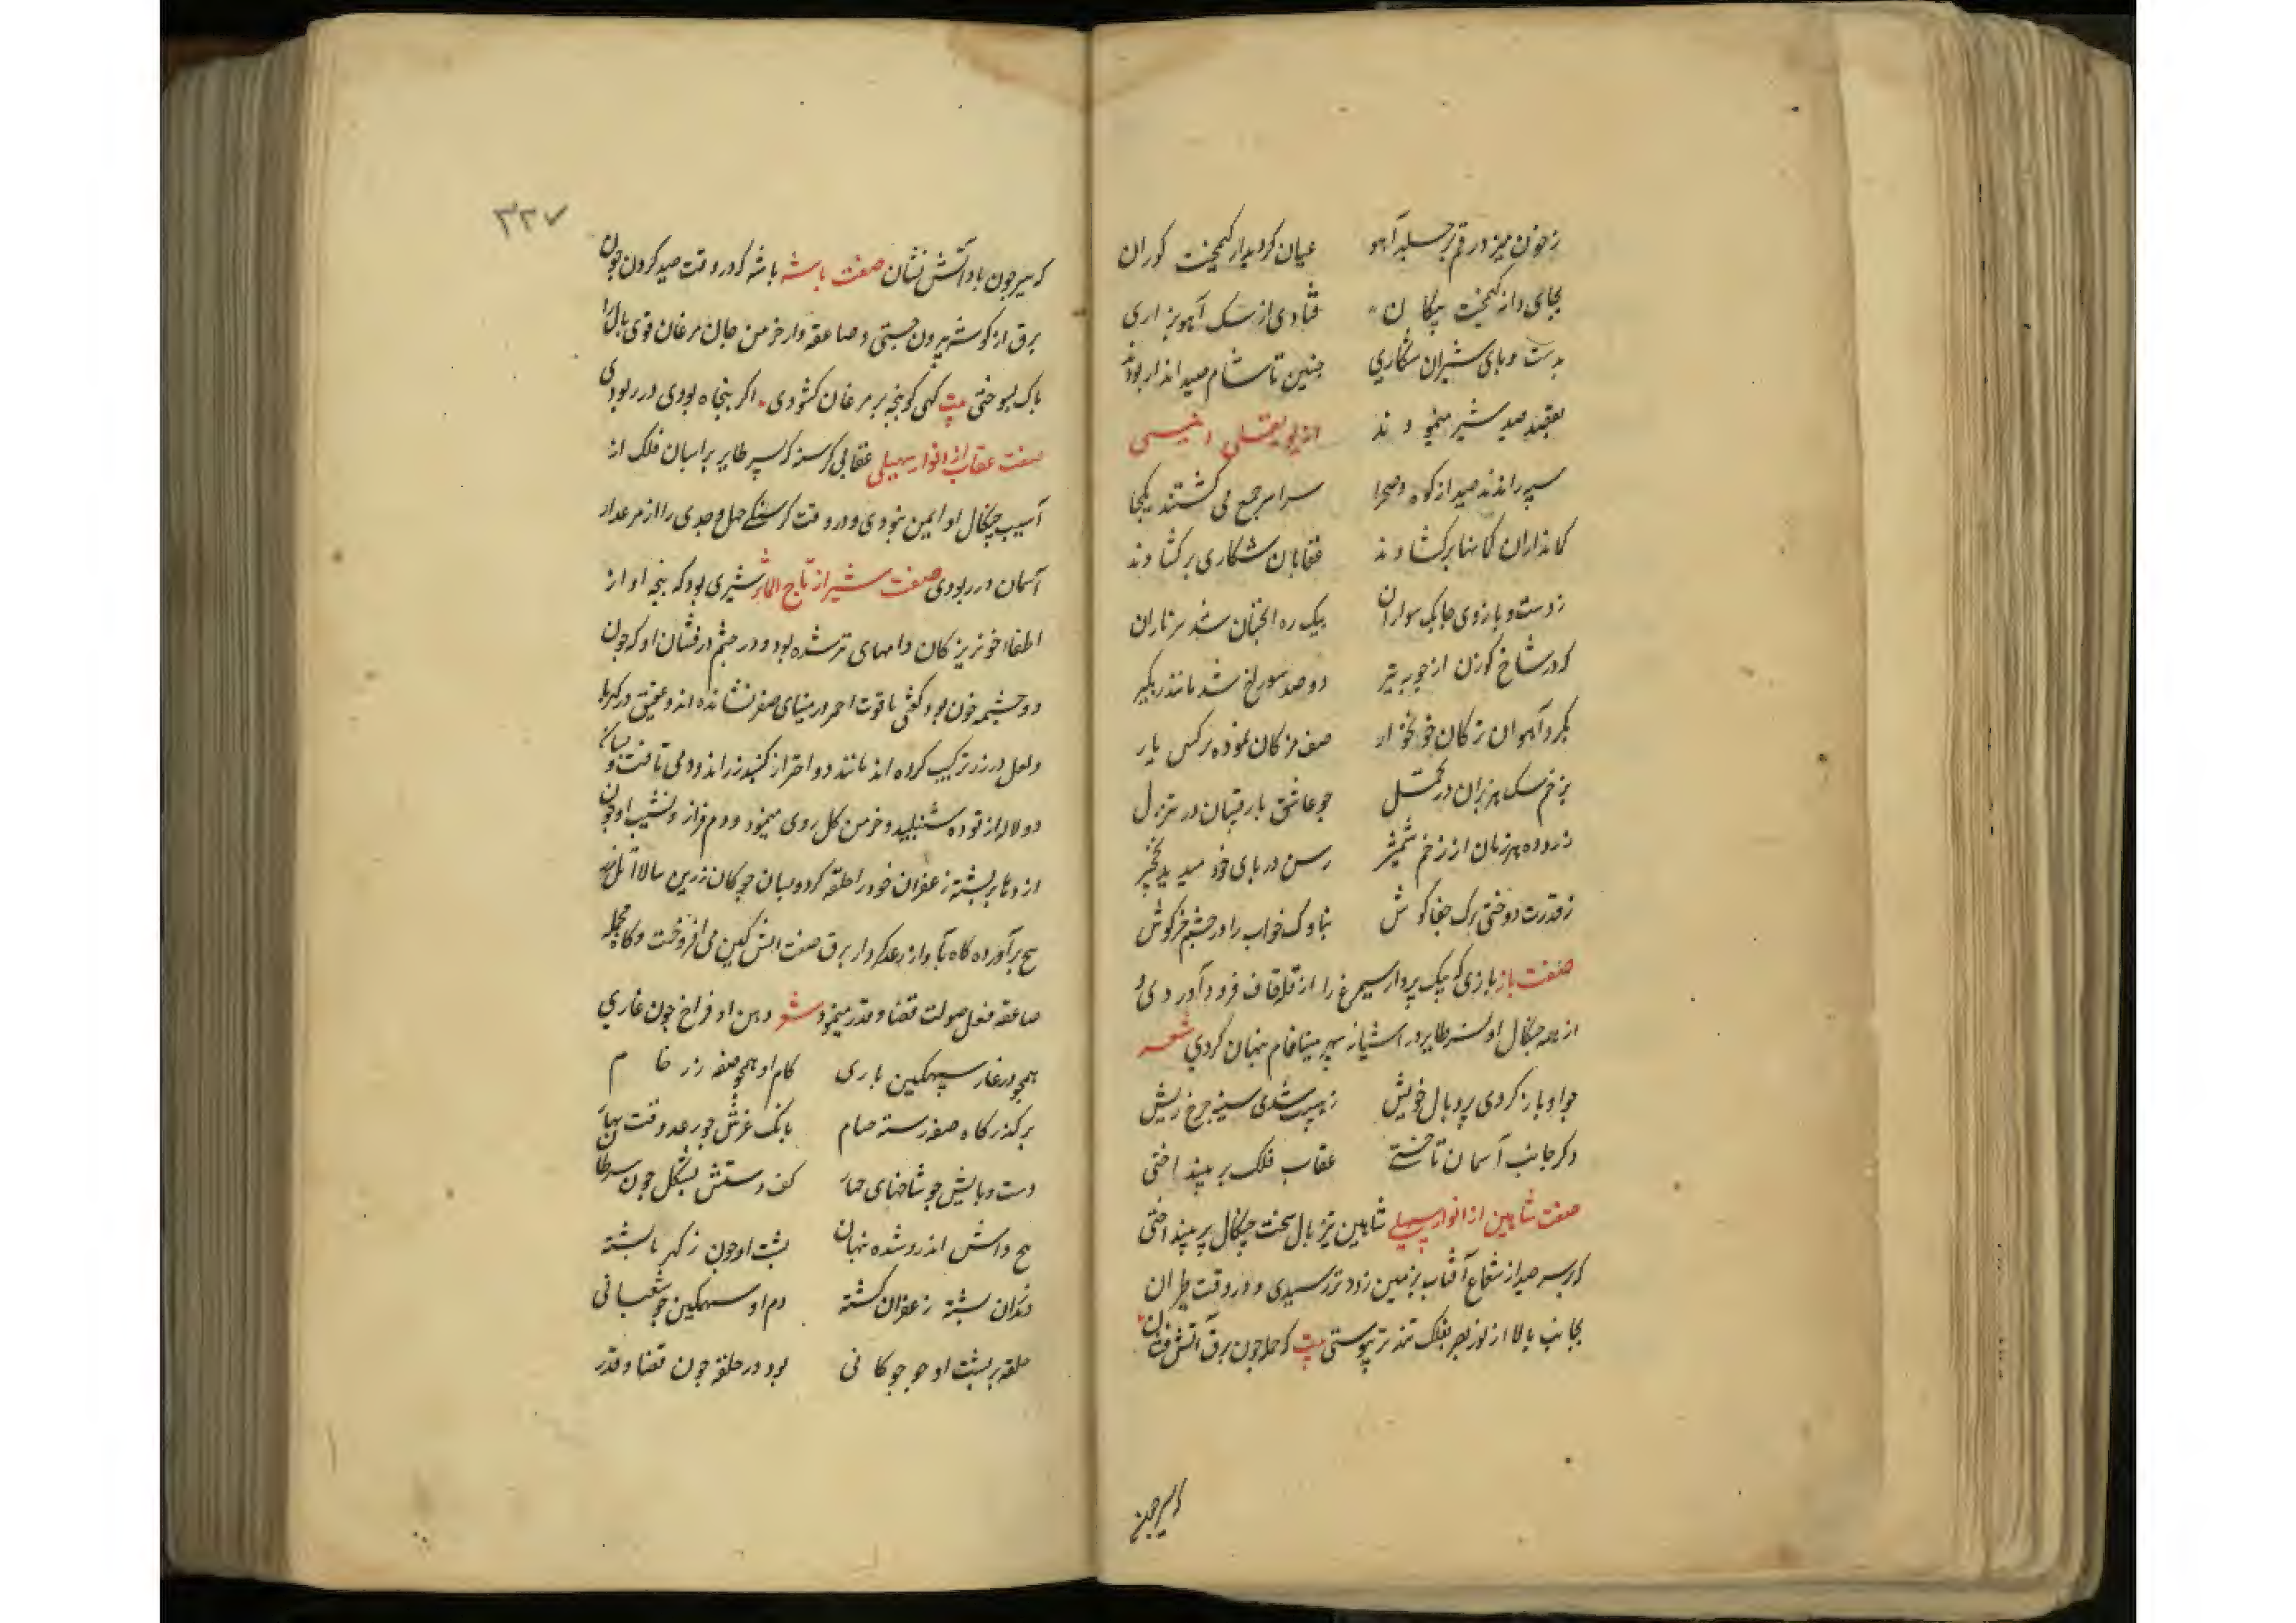 زخون میزد رقم بر جلد آهو عیان کردید از کیمخت کوران
بجای دانه کیمخت پیکان فتادی از سک آهو بزاری
بدست و پای شیران شکاری چنین تا شام صید انداز بودند
بقصد صید شیر مینمودند
سپه راندند صید از کوه و صحرا سراسر جمع می کشتند یکجا
کمانداران کمانها بر کشادند عقابان شکاری بر کشادند
ز دست و بازوی چابک سواران بیک ره آنچنان شد تیر باران
که در شاخ کوزن از چوبه تیر دو صد سوراخ شد مانند
بکرد آهوان ترکان خونخوار صف مژکان نموده نرکس یار
بزخم سک هزبران در تحمل چو عاشق با رقیبان در تنزل
هزبران از زخم شمشیر رسن در پای خود میدید نخچیر
ز قدرت دوختی ترک جفاکوش بناوک خواب را در چشم خرکوش
صفت باز بازی که بیک پرواز سیمرغ را از قله قاف فرود آوردی و
از بیم چنکال او نسر طایر در آشیانه سپهر مینافام پنهان کردی شعر
چو او باز کردی پر و بال خویش ز هیبت شدی سینه چرخ ریش
وکر جانب آسمان تاختی عقاب فلک پر بینداختی
صفت شاهین از انوار سهیلی شاهین تیز بال سخت چنکال پر بینداختی
که بر سر صید از شعاع آفتاب بزمین زودتر رسیدی و در وقت طیران
بجانب بالا از نور بصر بفلک تندتر پیوستی بیت که حمله چون برق آتش فشان
که سیر چون
۳۲۷
که سیر چون باد آتش نشان صفت باشه باشه که در وقت صید کردن چون
برق از کوشه بیرون جستی و صاعقه وار خرمن جان مرغان قوی بال را
پاک بسوختی بیت کهی کو پنجه بر مرغان کشودی اکر پنجاه بودی در ربودی
صفت عقاب از انوار سهیلی عقابی کرسنه که نسر طایر بر آسیان فلک از
آسیب چنکال او ایمن نبودی و در وقت کرسنکی حمل و جدی را از مرغزار
آسمان در ربودی صفت شیر از تاج المآثر شیری بود که پنجه او از
اطفاء خونریز کان دامهای تر شده بود و در چشم درفشان او که چون
دو چشمه خون بود کفتی یاقوت احمر در مینای صفر نشانده اند و عقیق در کهربا
و لعل در زر ترکیب کرده اند مانند دو اختر از کنبد زراندود می تافت و بسان
دو لاله از توده شنبلید و خرمن کل روی مینمود و دم فراز و نشیب او چون
اژدها بر پشته زعفران خود را حلقه کرد و بسان چوکان زرین بالا
برآورده کاه بآواز رعد کردار برق صفت آتش کین می افروخت و کاه بحمله
صاعقه فعل صولت قضا و قدر مینمود شعر دهن او فراخ چون غاری
همچو در غار سهمکین ماری کام او همچو صفه زر خام
بر کذرکاه صفه رسته بانک غرش چو رعد وقت بهار
دست و پایش چو شاخهای چنار کف دستش بشکل چون سرطان
اندرو شده پنهان پشت او چون ز کهربا پشته
پشته زعفران کشته دم او سهمکین چو ثعبانی
حلقه بر پشت او چو چوکانی بود در حلقه چون قضا و قدر